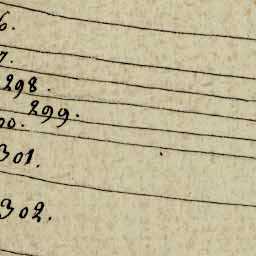 6.
7.
298.
299.
00.
301.
302.